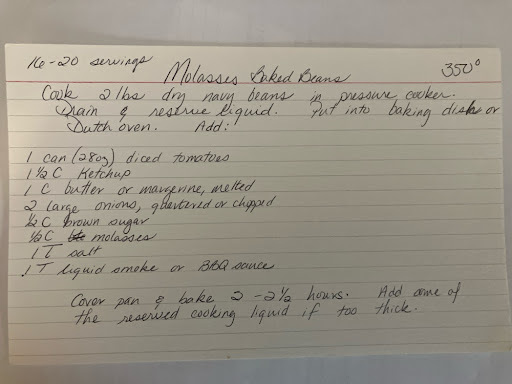 16-20 servings
Molasses Baked Beans 350°
Cook 2 lbs dry navy beans in pressure cooker.
Drain & reserve liquid. Put into baking dish or
Dutch oven. Add:
1 can (28oz) diced tomatoes
1 1/2 C Ketchup
1 C butter or margerine, melted
2 large onions, quartered or chopped
1/2 C brown sugar
1/2 C molasses
1 T salt
1 T liquid smoke or BBQ sauce
Cover pan & bake 2 - 2 1/2 hours. Add some of
the reserved cooking liquid if too thick.